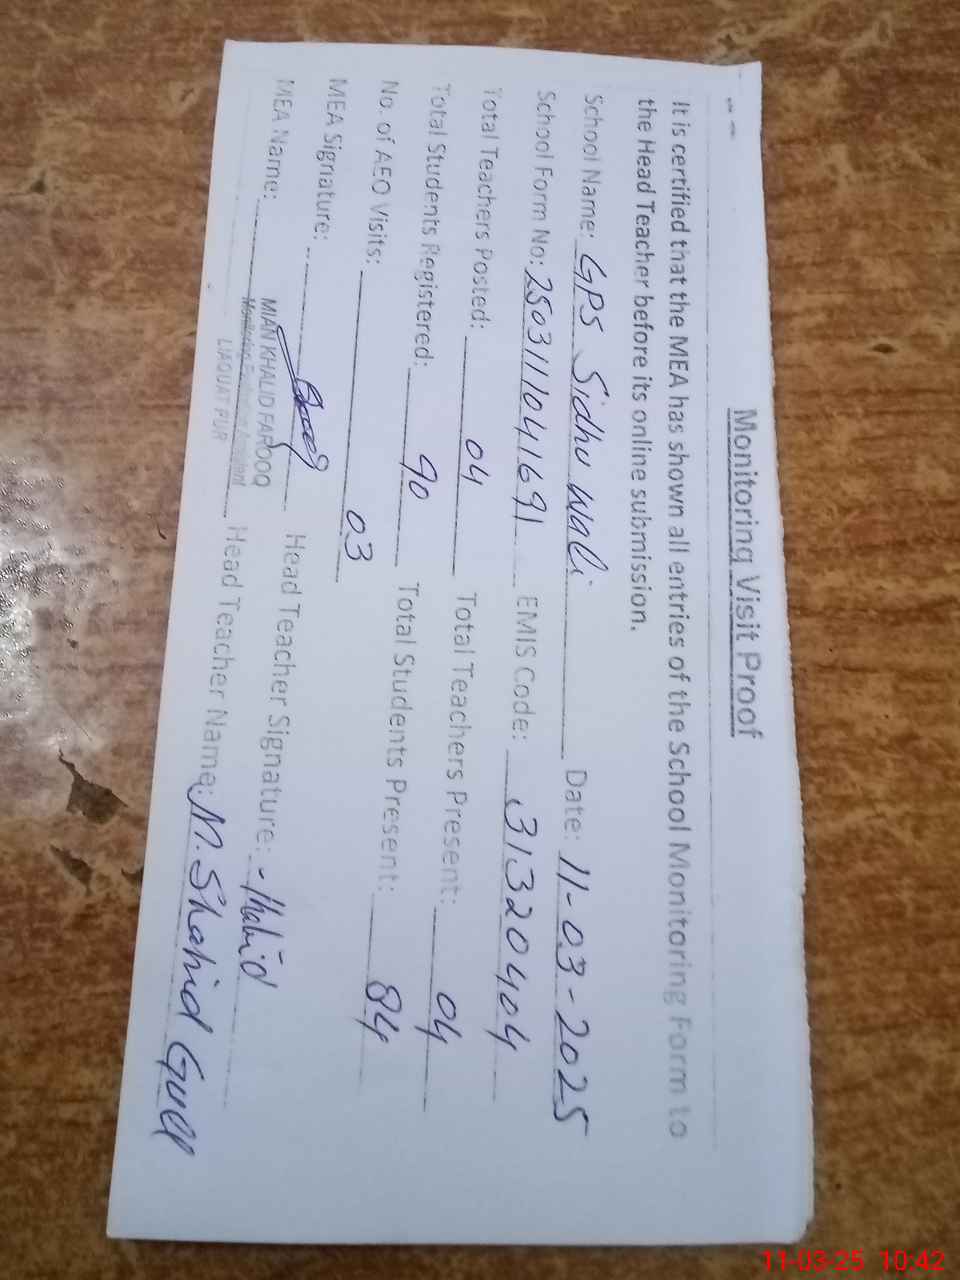 Monitoring Visit Proof
It is certified that the MEA has shown all entries of the School Monitoring Form to
the Head Teacher before its online submission.
School Name: GPS Sidhu Wali Date: 11-03-2025
School Form No: 2503111041691 EMIS Code: 31320404
Total Teachers Posted: 04 Total Teachers Present: 04
Total Students Registered: 90 Total Students Present: 84
No. of AEO Visits: 03
MEA Signature: Head Teacher Signature:
MEA Name: MIAN KHALID FAROOQ Head Teacher Name: M. Shahid
Monitoring
LIAQUAT PUR
11-03-25 10:42